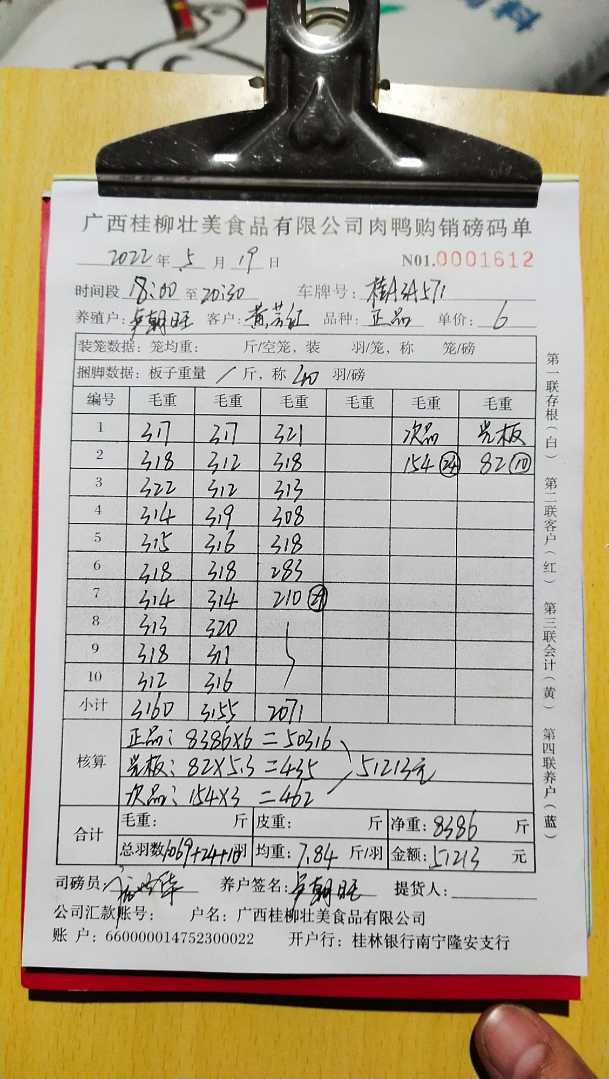 广西桂柳壮美食品有限公司肉鸭购销磅码单
2022年5月19日 N01.0001612
时间段18:00至20:30 车牌号:桂A3A571
养殖户:朝旺 客户:黄芳红 品种:正品 单价:6
装笼数据:笼均重: 斤/空笼,装 羽/笼,称 笼/磅
捆脚数据:板子重量 / 斤,称40羽/磅
编号 毛重 毛重 毛重 毛重 毛重 毛重
1 317 317 321 次品 光板
2 318 312 318 154 24 82 10
3 322 312 313
4 314 319 308
5 315 316 318
6 318 318 283
7 314 314 210
8 313 320
9 318 311
10 312 316
小计 3160 3155 2071
核算
正品:8386×6=50316
光板:82×5.3=435
次品:154×3=462
51213元
合计
毛重: 斤 皮重: 斤 净重:8386斤
总羽数1069+24+10羽 均重:7.84斤/羽 金额:51213元
司磅员: 养户签名:朝旺 提货人:
公司汇款账号: 户名:广西桂柳壮美食品有限公司
账户:660000014752300022 开户行:桂林银行南宁隆安支行
第一联存根(白) 第二联客户(红) 第三联会计(黄) 第四联养户(蓝)